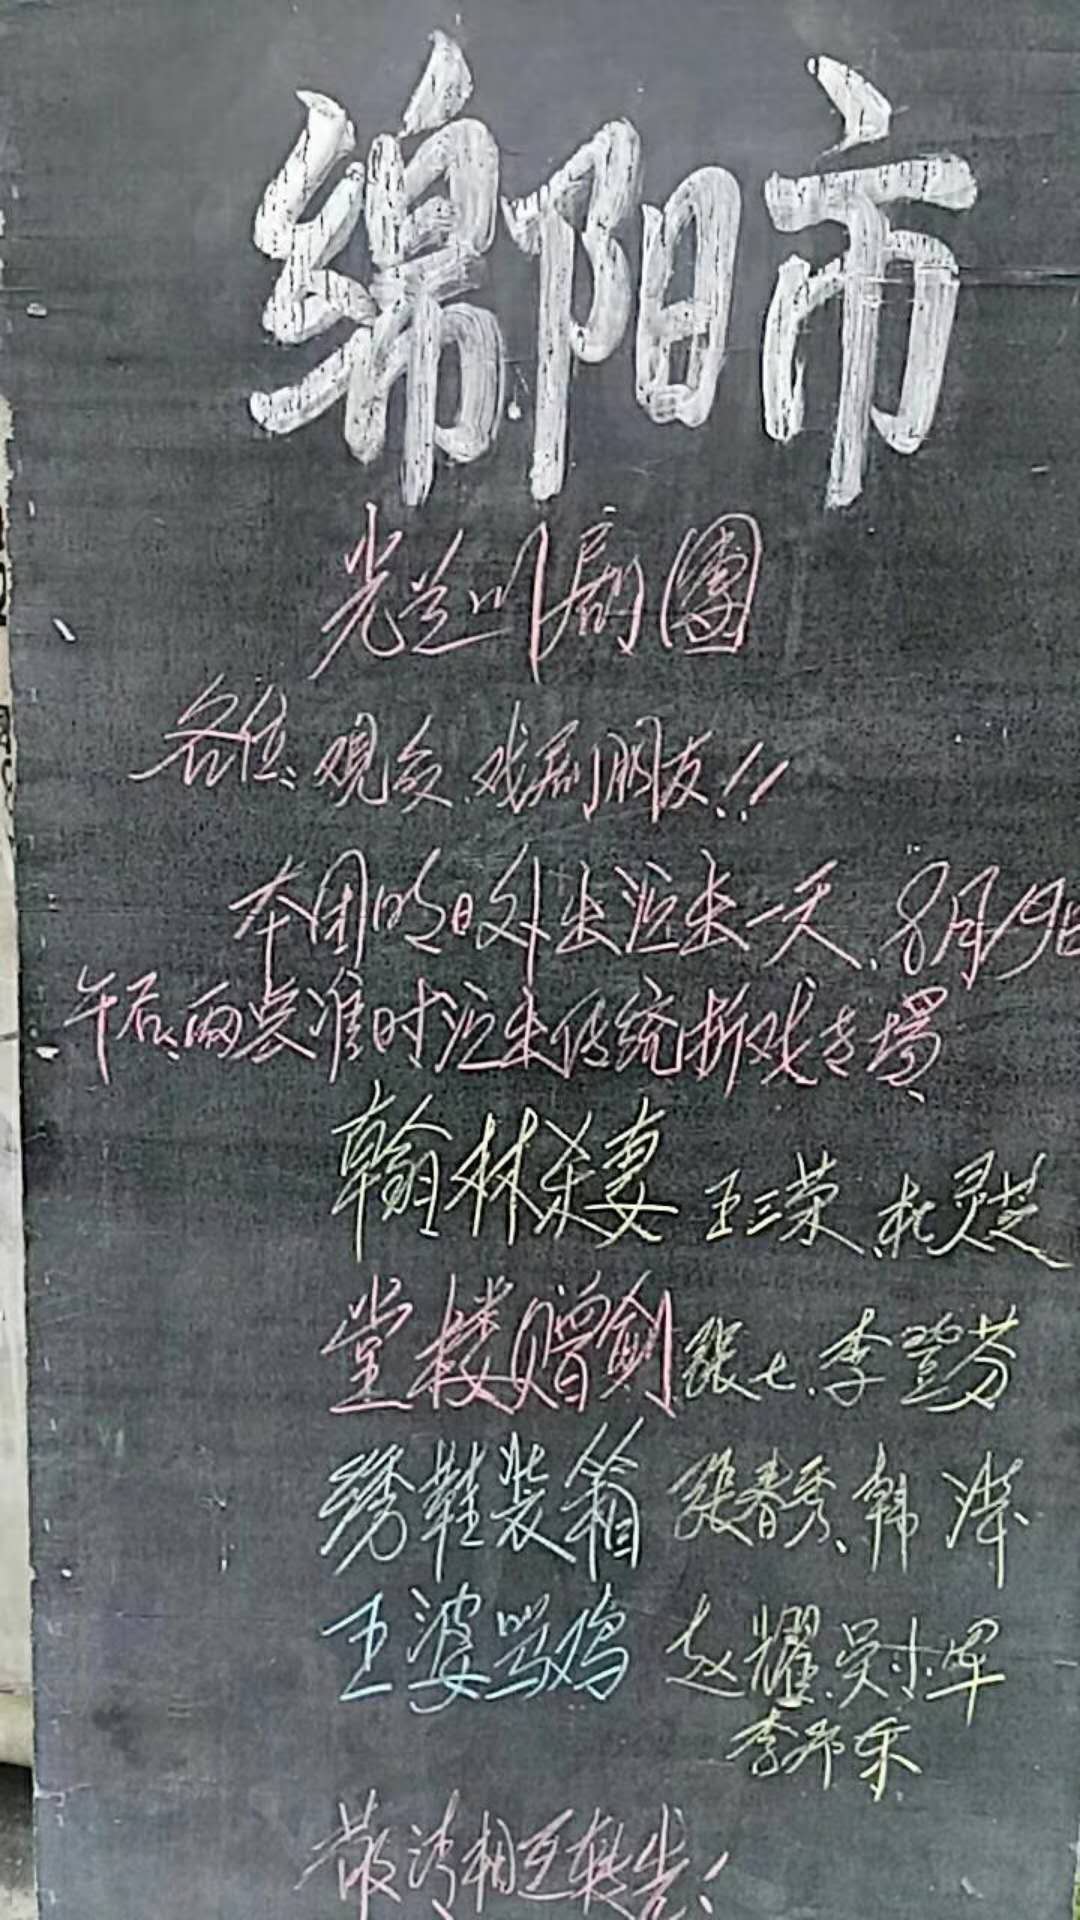 绵阳市
光芒川剧團
各位、观众、戏剧朋友!!
本团明日外出演出一天、8月19日
午后、两点准时演出传统折戏专場、
翰林杀妻 王三荣、杜灵芝
堂楼赠劍 張七、李登芬
绣鞋装箱 張春秀、韩 涛
王婆骂鸡 赵耀、吴小军
李邦乐
敬请相互转告!